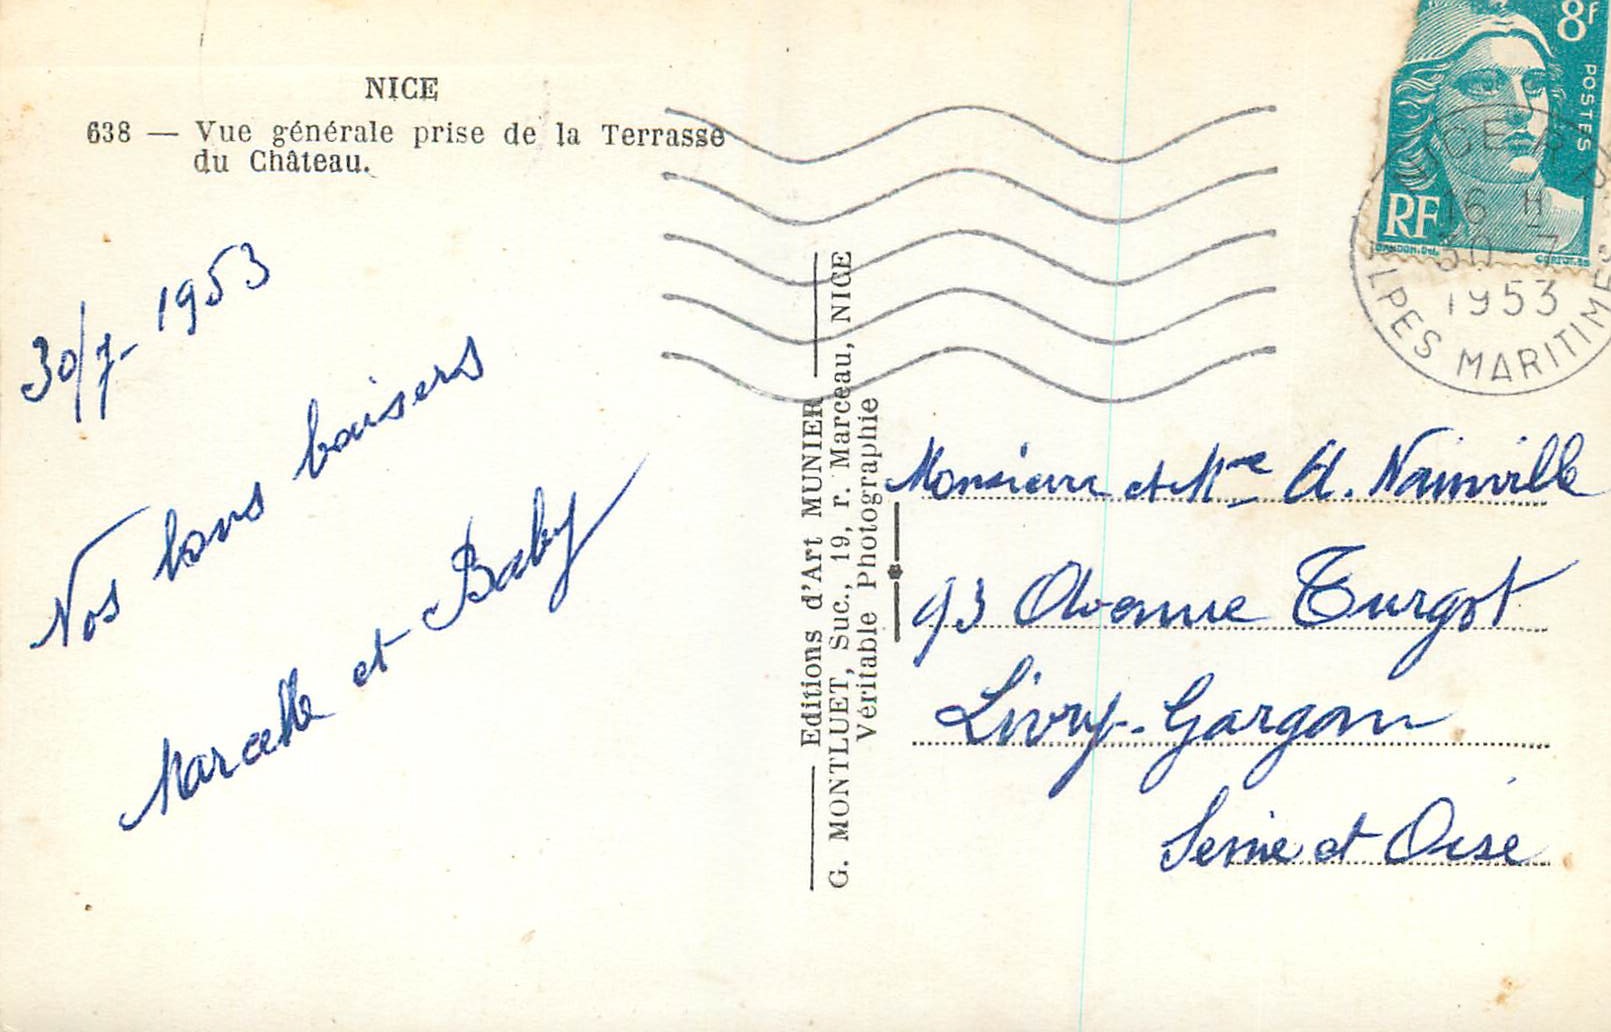 NICE
638 — Vue générale prise de la Terrasse
du Château.
30/7- 1953
Nos bons baisers
Marcelle et Baby
Editions d'Art MUNIER
G. MONTLUET, Suc., 19, r. Marceau, NICE
Véritable Photographie
8f
POSTES
RF
16 H
30 7
1953
ALPES MARITIMES
Monsieur et Mme A. Nainville
93 Avenue Turgot
Livry-Gargan
Seine et Oise